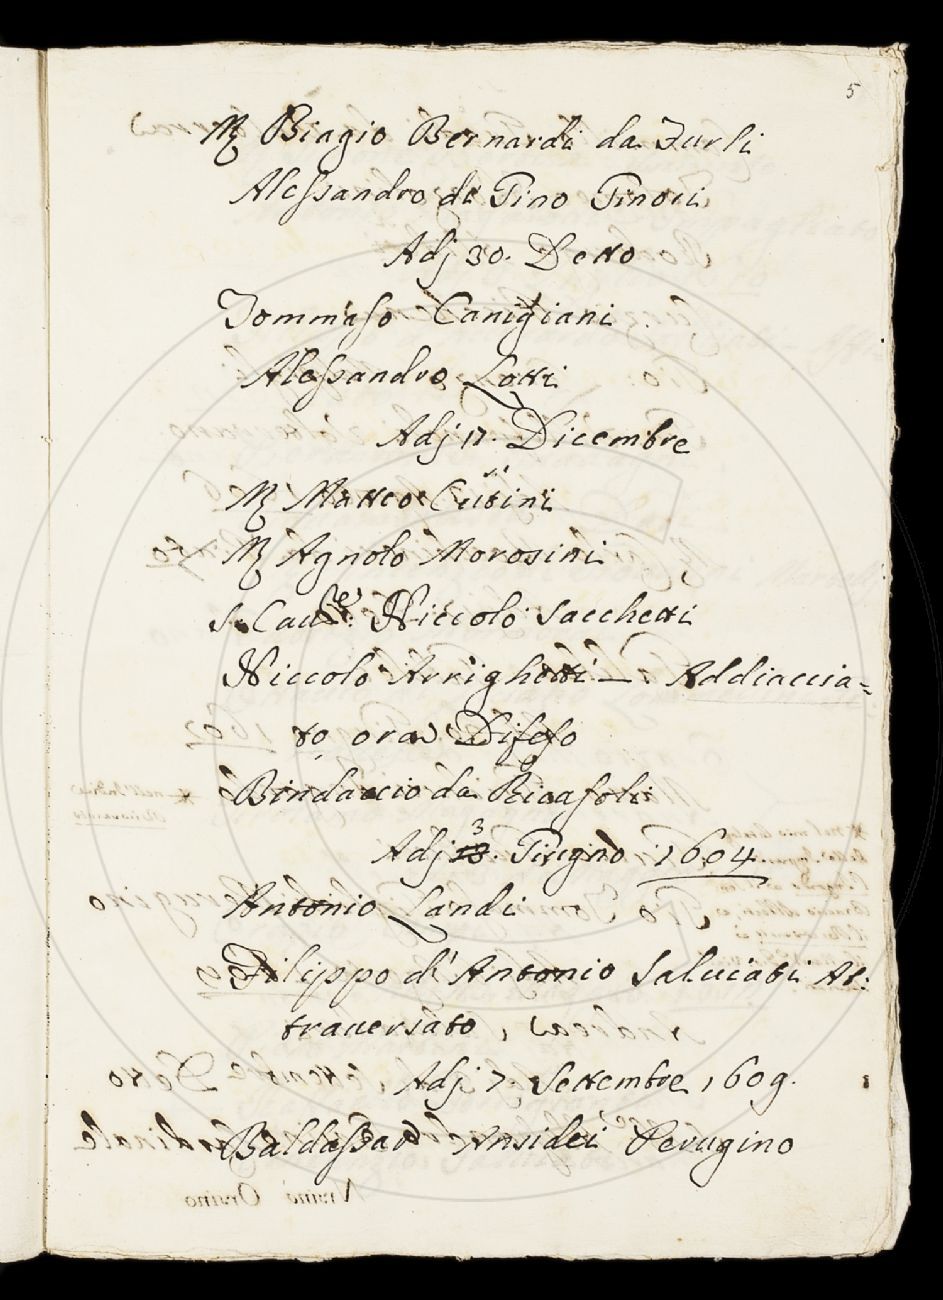 5
M Biagio Bernardi da Furli
Alessandro di Pino Pinoci
Adj 30. Detto
Tommaso Canigiani
Alessandro Lotti
Adj 17. Dicembre
M Matteo Cutini
M Agnolo Morosini
S. Cau.re Niccolò Sacchetti
Niccolò Arrighetti — Addiaccia=
to ora Difeso
Bindaccio da Ricasoli
Adj 3. Giugno 1604.
Antonio Landi
Filippo d' Antonio Salviati At:
trauersato
Adj 7 Settembre 1609.
Baldassar Ansidei Perugino